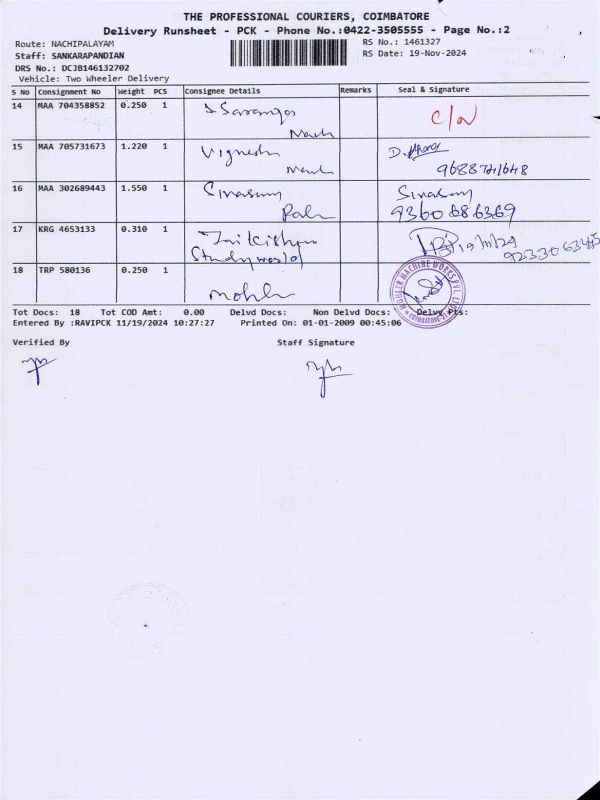 THE PROFESSIONAL COURIERS, COIMBATORE
Delivery Runsheet - PCK - Phone No.:0422-3505555 - Page No.:2
Route: NACHIPALAYAM
RS No.: 1461327
Staff: SANKARAPANDIAN
RS Date: 19-Nov-2024
DRS No.: DCJB146132702
Vehicle: Two Wheeler Delivery
S No Consignment No Weight PCS Consignee Details Remarks Seal & Signature
14 MAA 704358852 0.250 1
C/N
15 MAA 705731673 1.220 1 Vignesh
9688741648
16 MAA 302689443 1.550 1 Sivasamy Sivasamy
Palr 9360686369
17 KRG 4653133 0.310 1 Jai Kishan
Study world
18 TRP 580136 0.250 1
Mohler
MOHLER MACHINE WORKS PVT. LTD.
COIMBATORE
Tot Docs: 18 Tot COD Amt: 0.00 Delvd Docs: Non Delvd Docs: Delvy Pts:
Entered By :RAVIPCK 11/19/2024 10:27:27 Printed On: 01-01-2009 00:45:06
Verified By Staff Signature